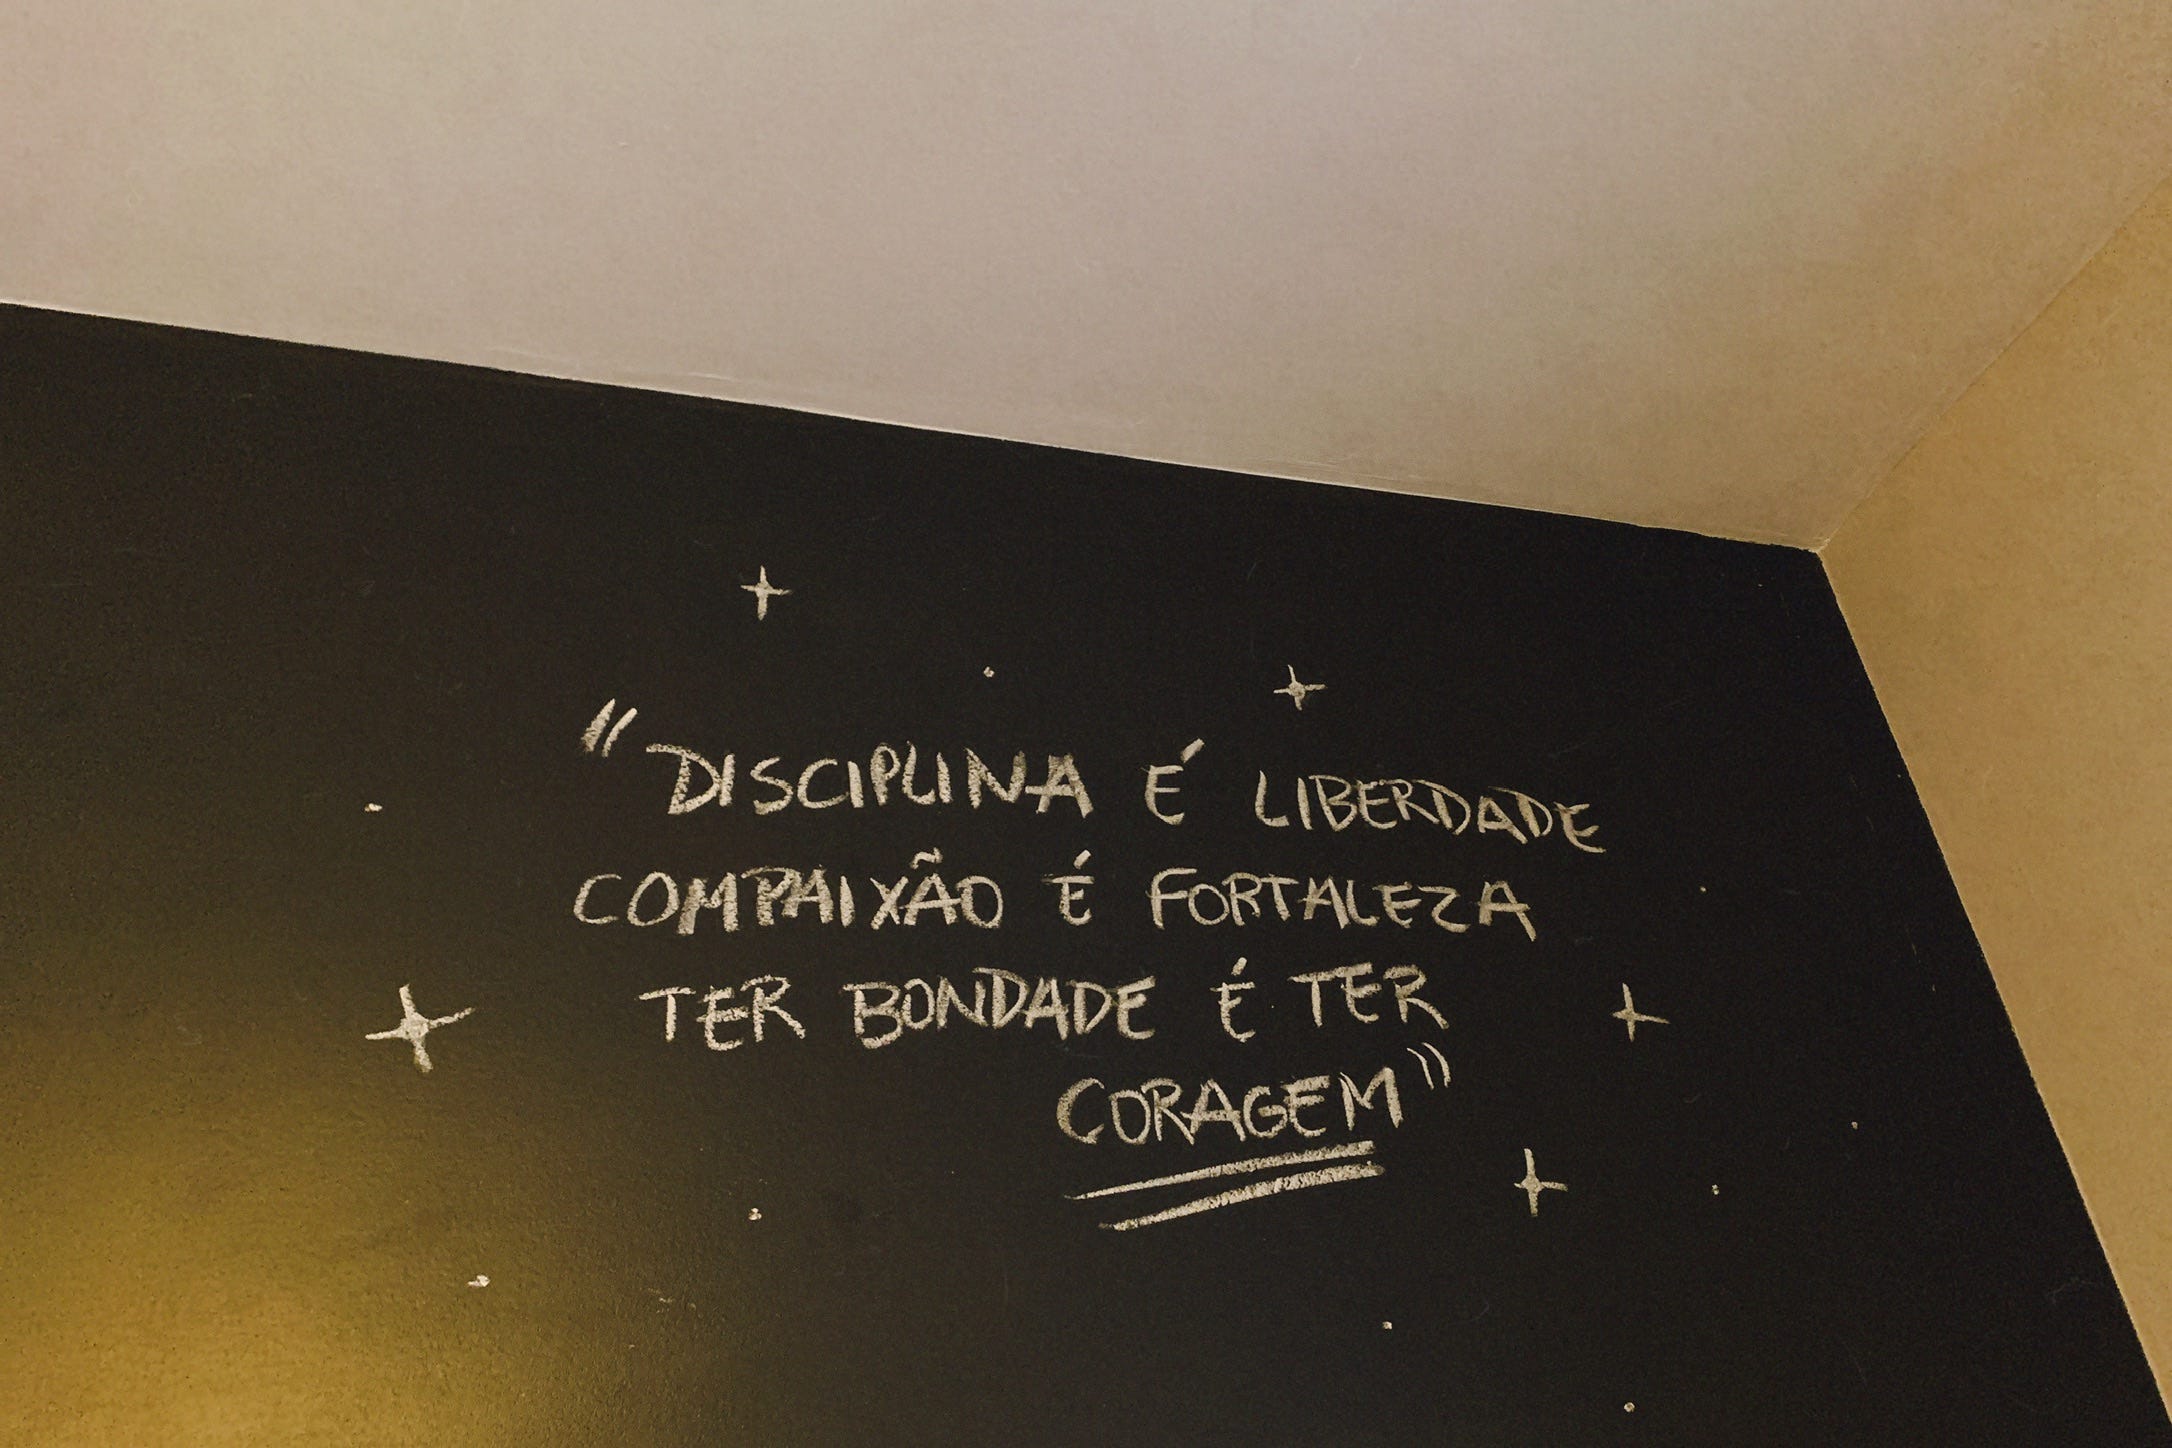 "DISCIPLINA É LIBERDADE
COMPAIXÃO É FORTALEZA
TER BONDADE É TER
CORAGEM"